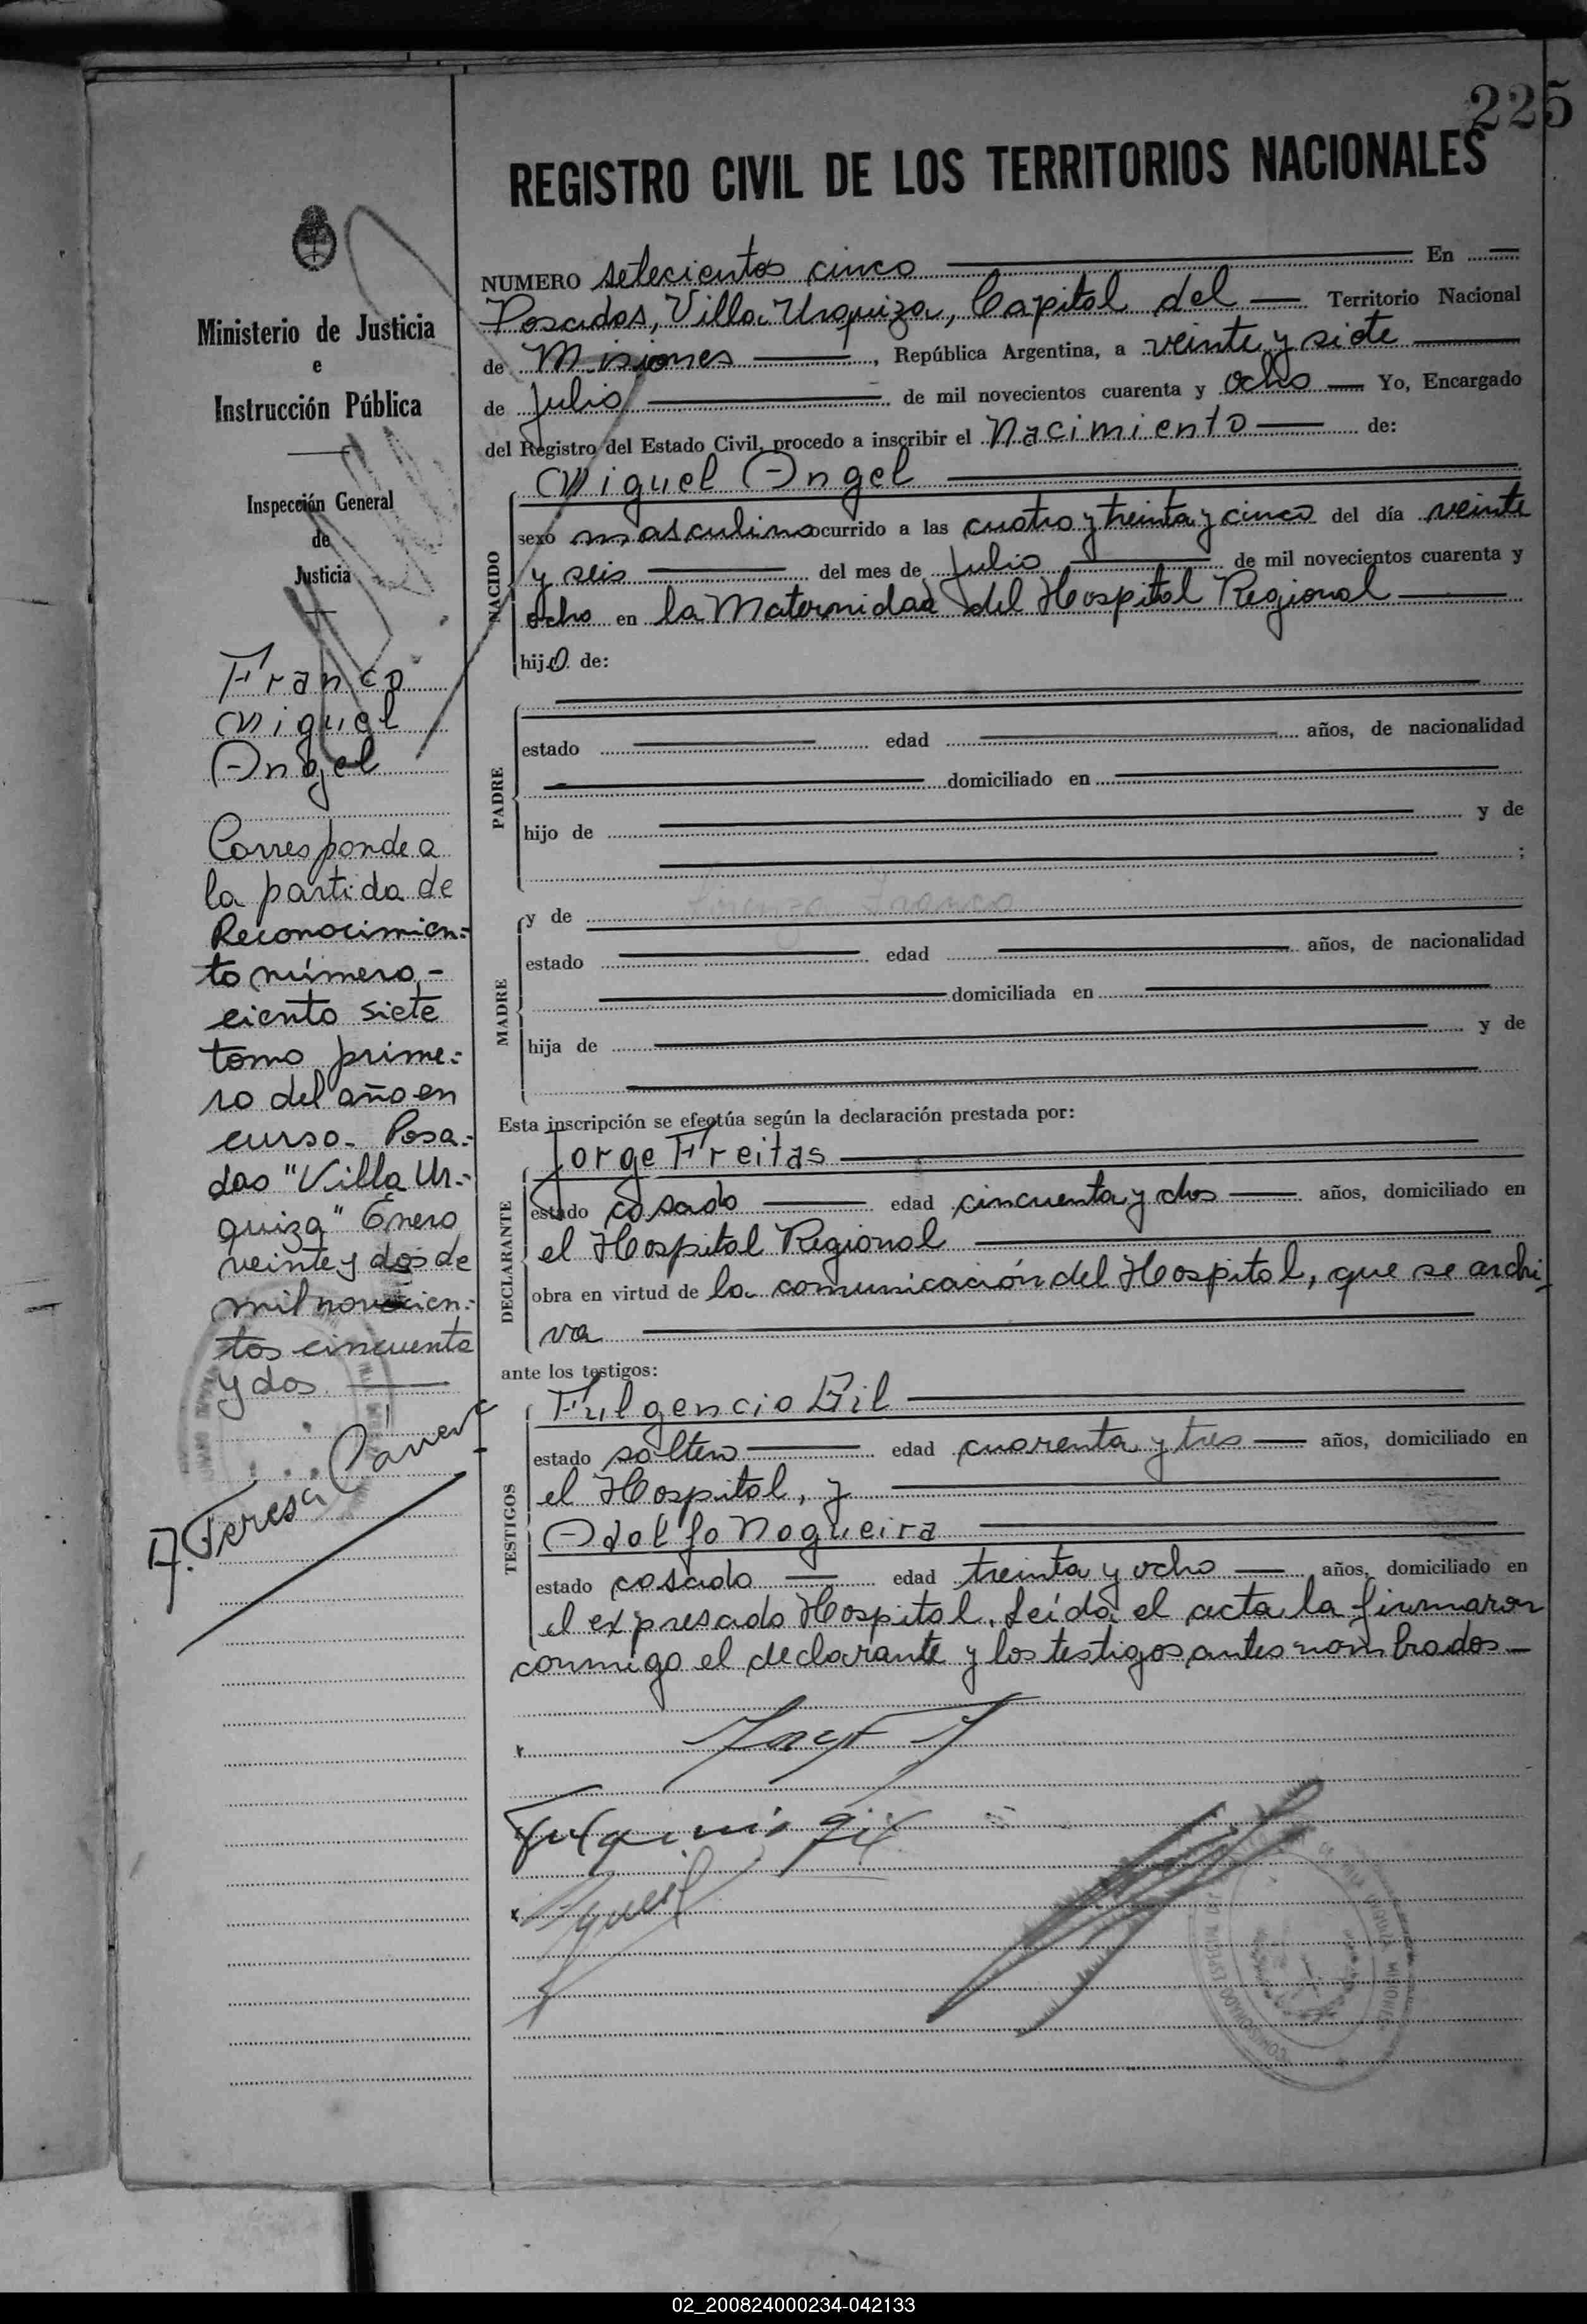 225
REGISTRO CIVIL DE LOS TERRITORIOS NACIONALES
Ministerio de Justicia
e
Instrucción Pública
Inspección General
de
Justicia
Franco
Miguel
Angel
Corresponde a
la partida de
Reconocimien-
to número -
ciento siete
tomo prime-
ro del año en
curso. Posa-
das "Villa Ur-
quiza" Enero
veinte y dos de
mil novecien-
tos cincuenta
y dos.
NUMERO setecientos cinco En
Posadas, Villa Urquiza, Capital del Territorio Nacional
de Misiones, República Argentina, a veinte y siete
de Julio de mil novecientos cuarenta y ocho Yo, Encargado
del Registro del Estado Civil, procedo a inscribir el Nacimiento de:
Miguel Angel
NACIDO
sexo masculino ocurrido a las cuatro y treinta y cinco del día veinte
y seis del mes de Julio de mil novecientos cuarenta y
ocho en la Maternidad del Hospital Regional
hijo de:
PADRE
estado edad años, de nacionalidad
domiciliado en
hijo de y de
;
MADRE
y de Lorenza Franco
estado edad años, de nacionalidad
domiciliada en
hija de y de
Esta inscripción se efectúa según la declaración prestada por:
DECLARANTE
Jorge Freitas
estado casado edad cincuenta y dos años, domiciliado en
el Hospital Regional
obra en virtud de la comunicación del Hospital, que se archi-
va
ante los testigos:
TESTIGOS
Fulgencio Gil
estado soltero edad cuarenta y tres años, domiciliado en
el Hospital, y
Adolfo Nogueira
estado casado edad treinta y ocho años, domiciliado en
el expresado Hospital. Leída el acta la firmaron
conmigo el declarante y los testigos antes nombrados
02_200824000234-042133